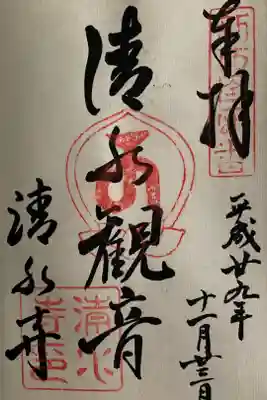 奉拝
平成廿九年
十一月廿三日
清水観音
清水寺
清水寺印